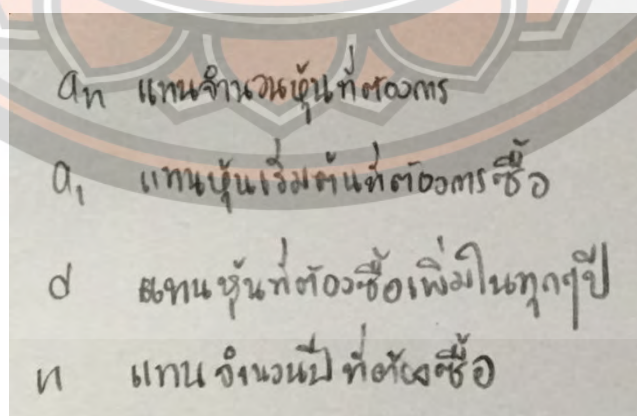 aₙ แทนจำนวนหุ้นที่ต้องการ
a₁ แทนหุ้นเริ่มต้นที่ต้องการซื้อ
d แทนหุ้นที่ต้องซื้อเพิ่มในทุกๆปี
n แทนจำนวนปีที่ต้องซื้อ